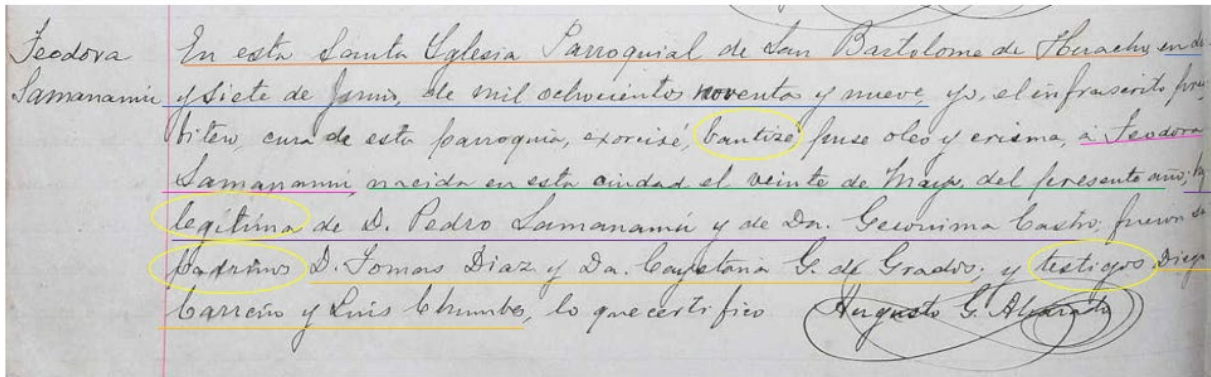 Feodora En esta Santa Yglesia Parroquial de San Bartolomé de Huacho, en
Samanamú y siete de Junio, de mil ochocientos noventa y nueve, yo, el infrascrito pres
bitero, cura de esta parroquia, exorcisé, bautizé puse oleo y crisma, á Feodora
Samanamú, nacida en esta ciudad el veinte de Mayo, del presente año;
legítima de D. Pedro Samanamú y de Da. Geronima Castro; fueron
padrinos D. Tomas Diaz y Da. Cayetana G. de Grados; y testigos Diego
Carreño y Luis Chumbes, lo que certifico Augusto G. Alvarado